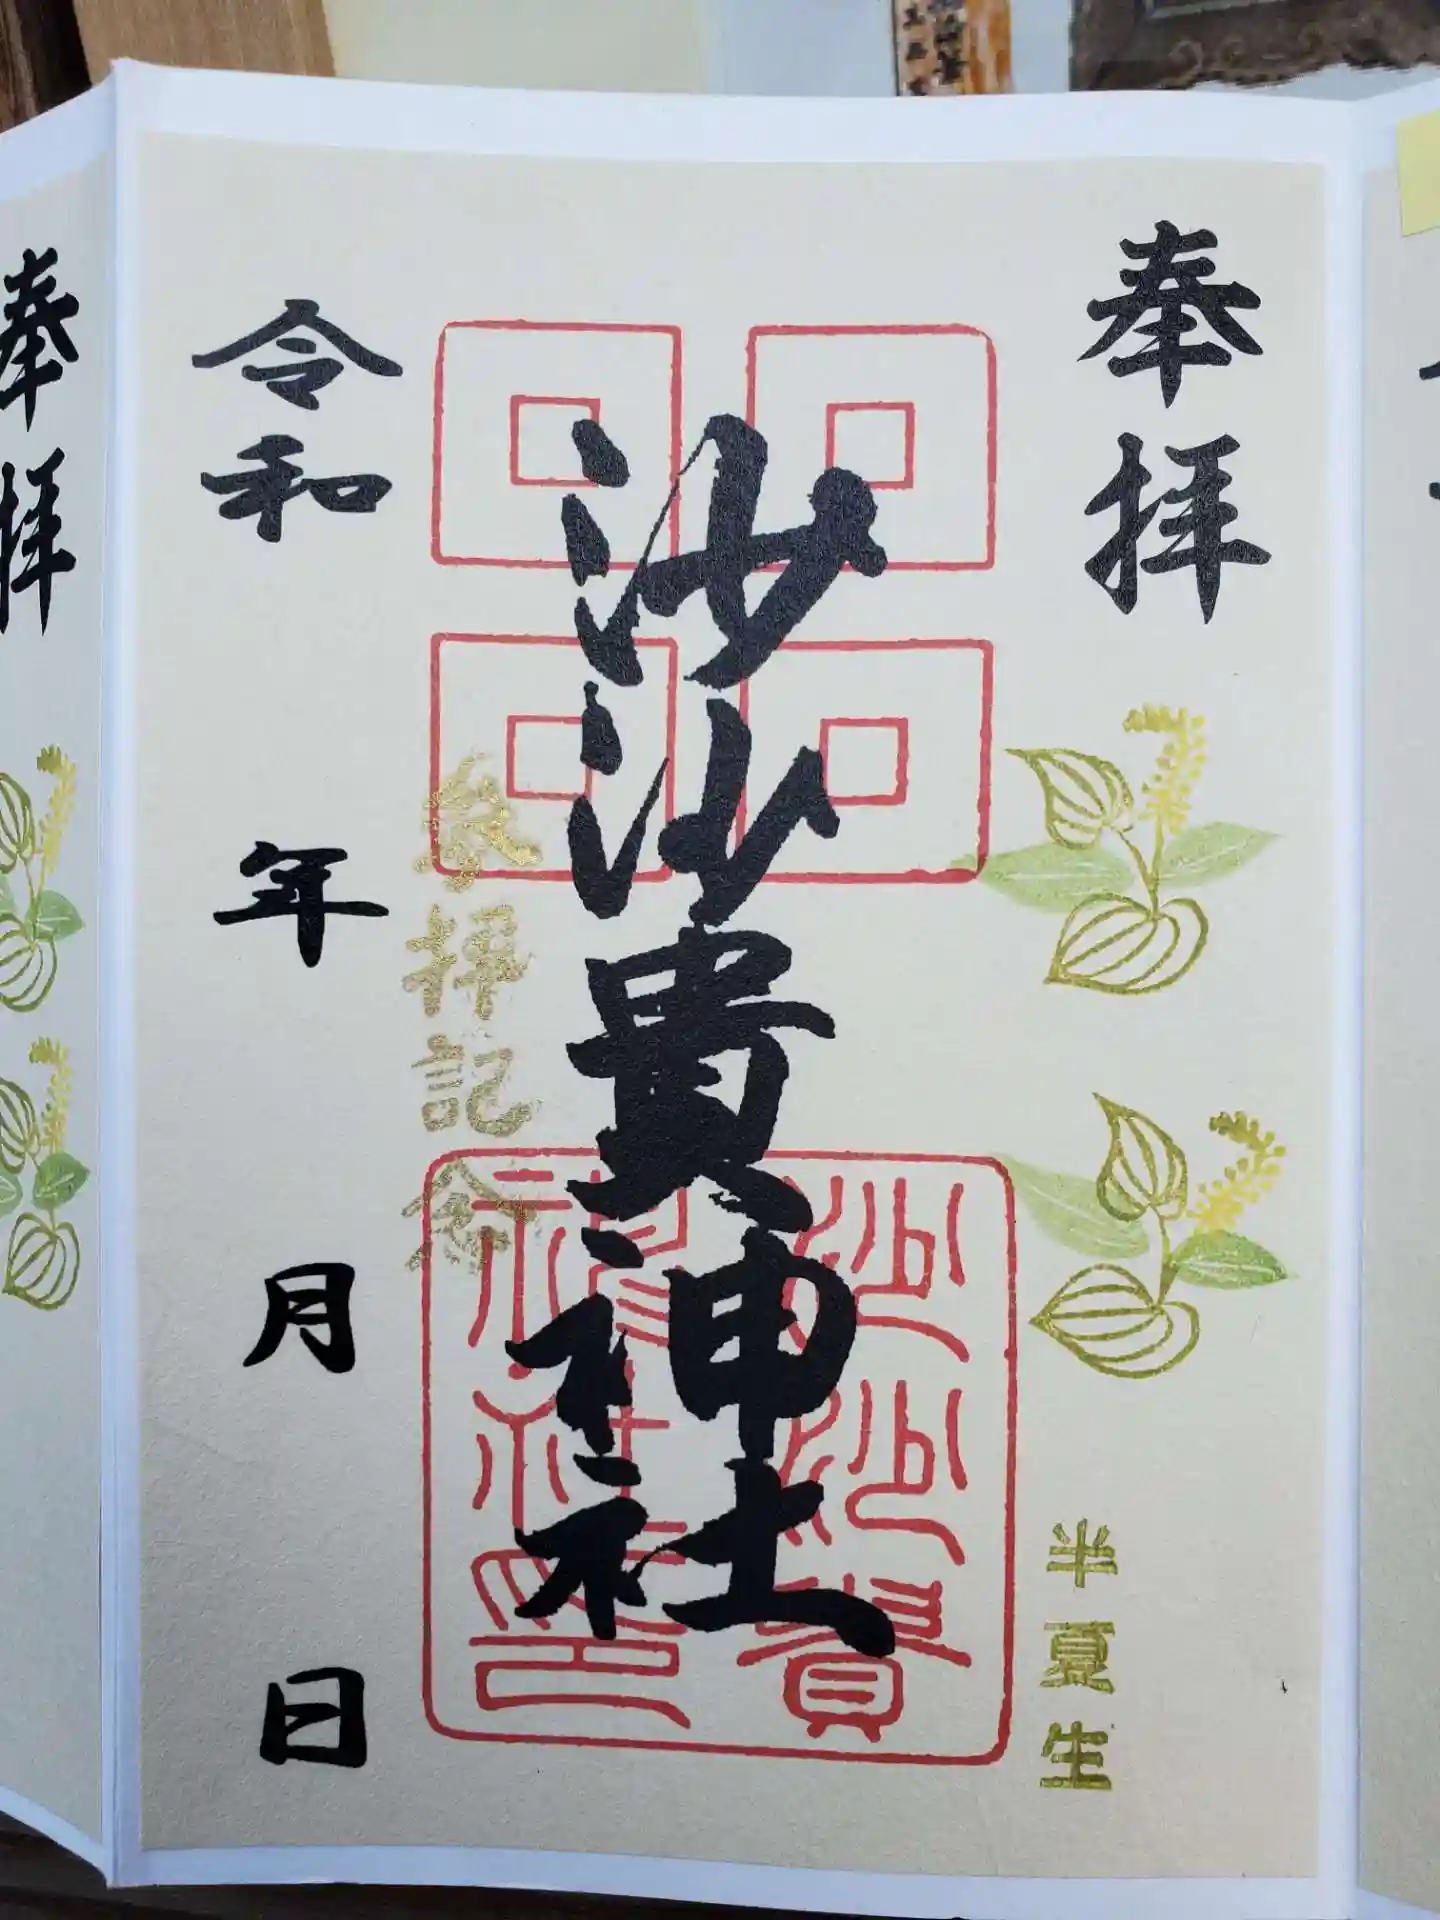 奉拝
半夏生
沙沙貴神社
沙沙貴
神社印
参拝記念
令和 年 月 日
奉拝